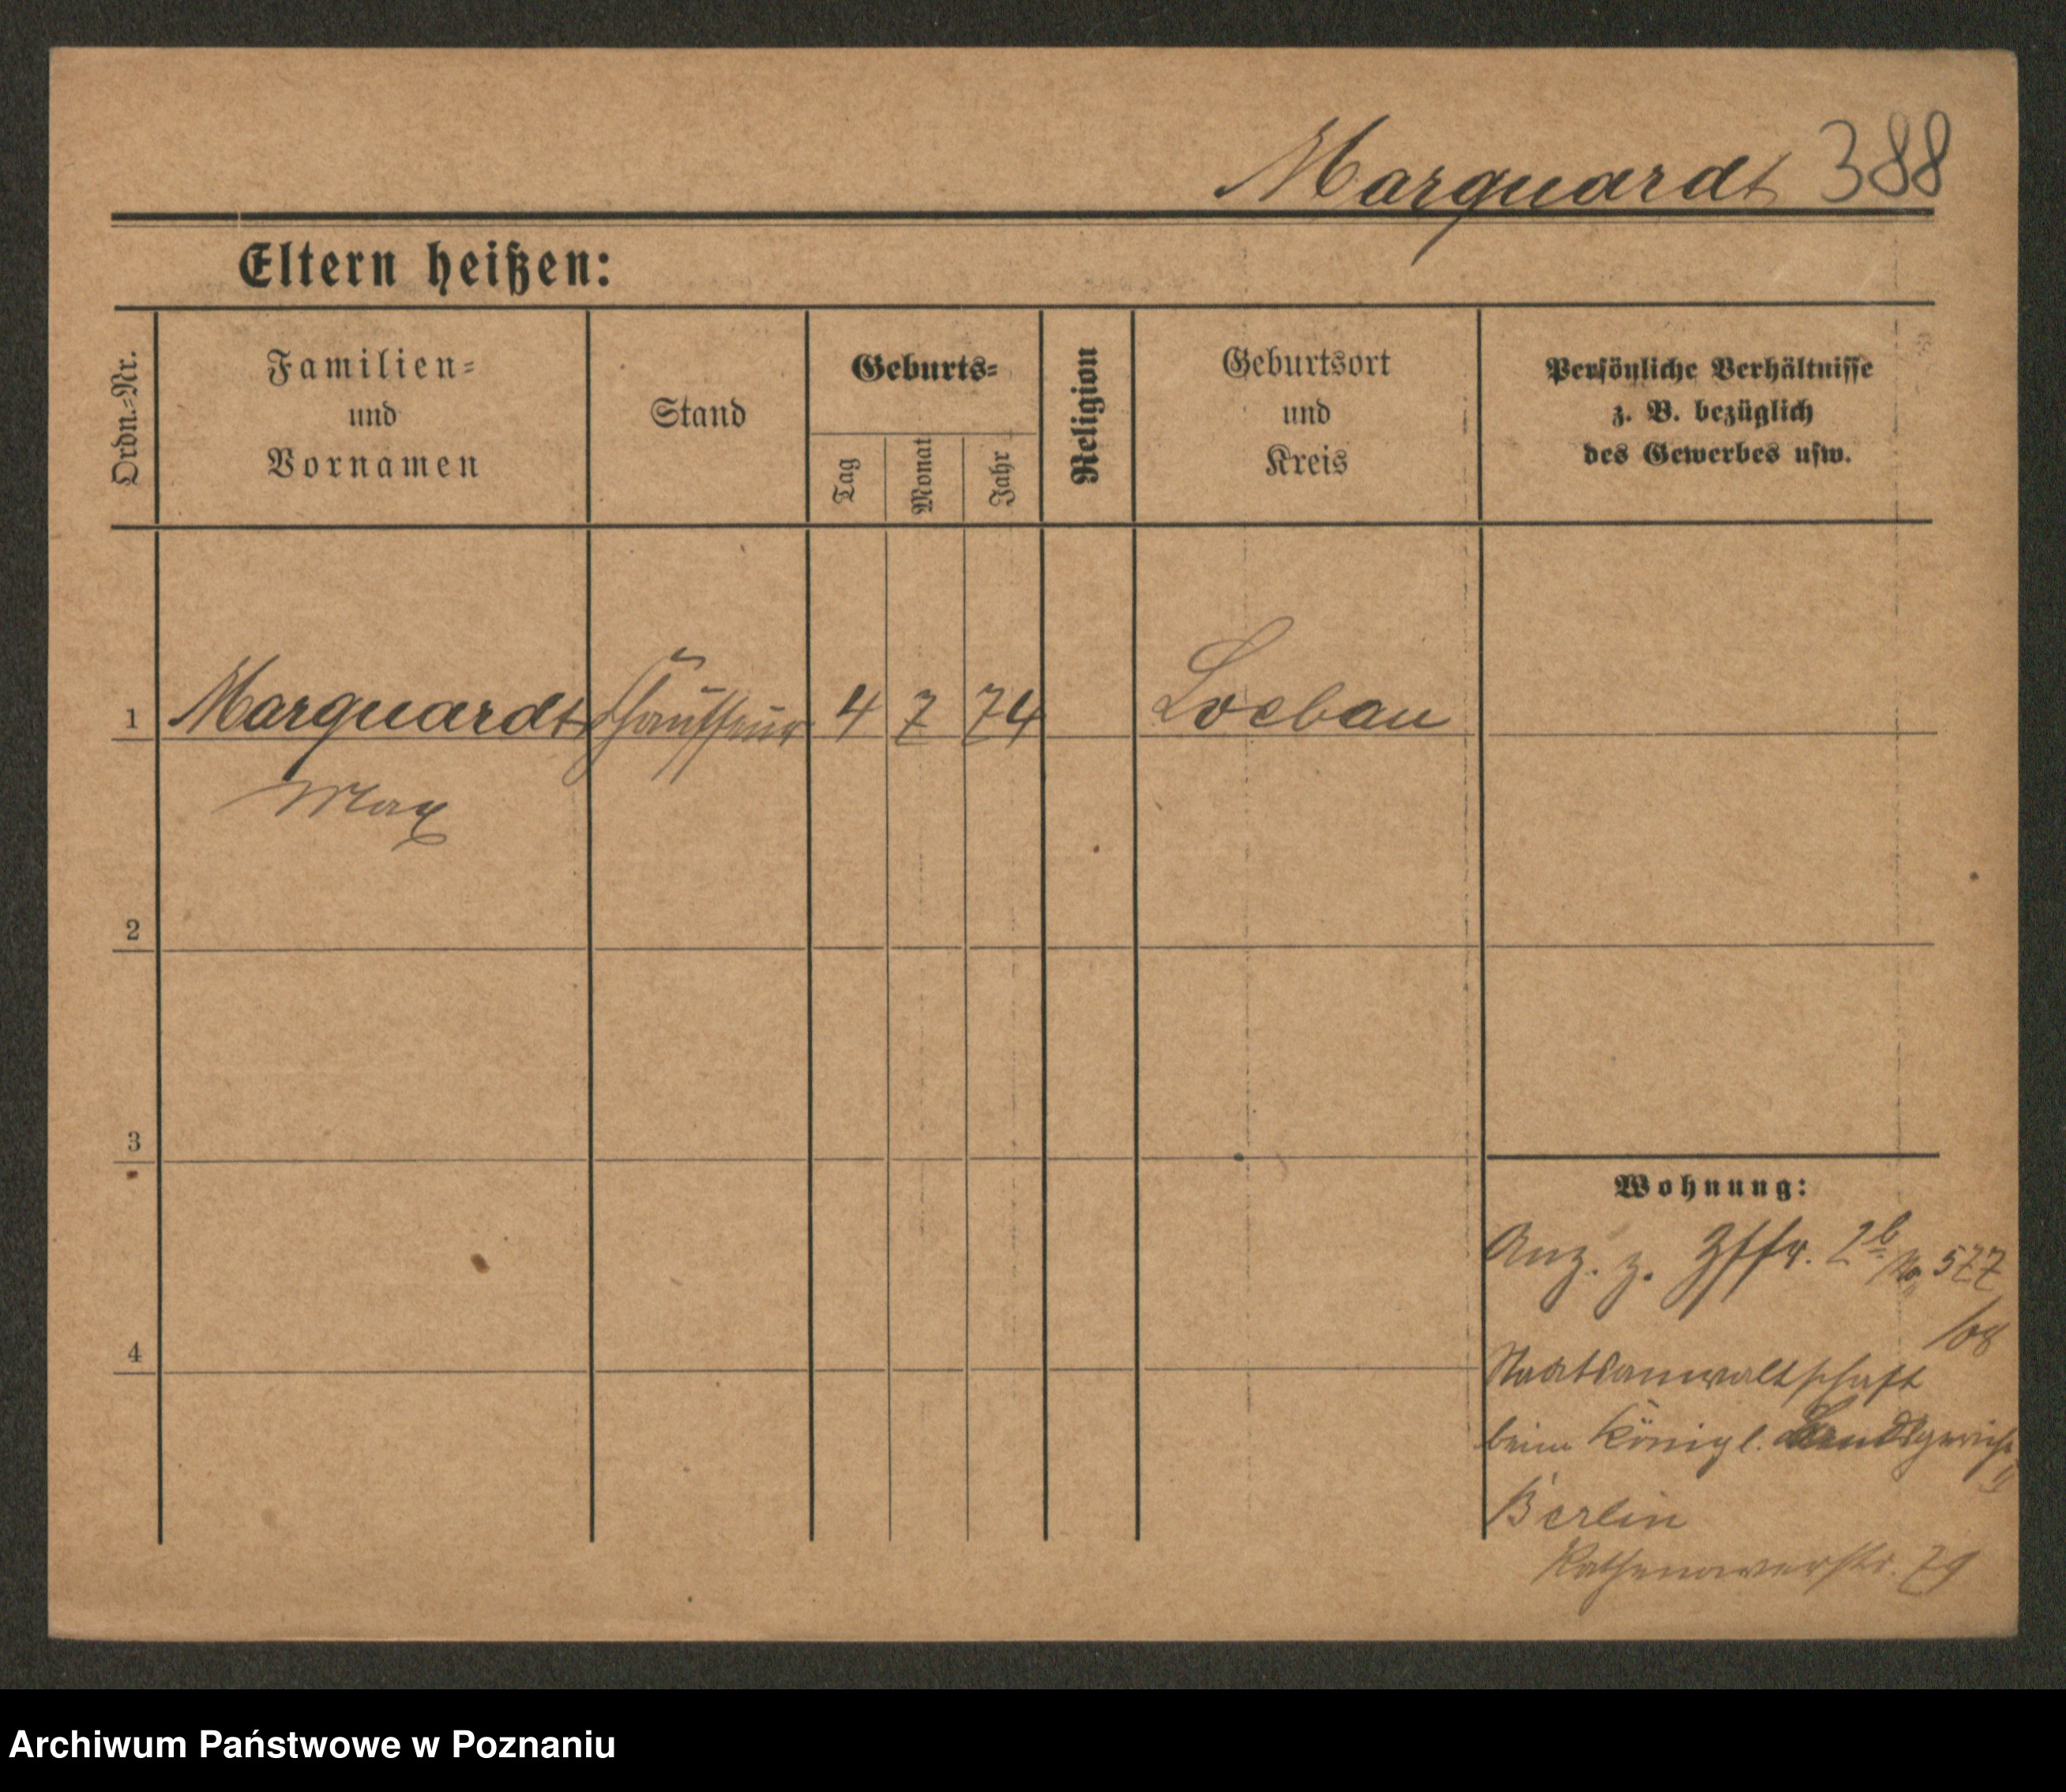 Marquardt 388
Eltern heißen:
Ordn.-Nr.
Familien-
und
Vornamen
Stand
Geburts-
Tag
Monat
Jahr
Religion
Geburtsort
und
Kreis
Persönliche Verhältnisse
z. B. bezüglich
des Gewerbes usw.
1 Marquardt Chauffeur 4 7 74 Loebau
Max
2
3
4
Wohnung:
Anz. z. 2b No 577
/08
Staatsanwaltschaft
beim Königl. Landgericht
Berlin
Rathenowerstr. 79
Archiwum Państwowe w Poznaniu